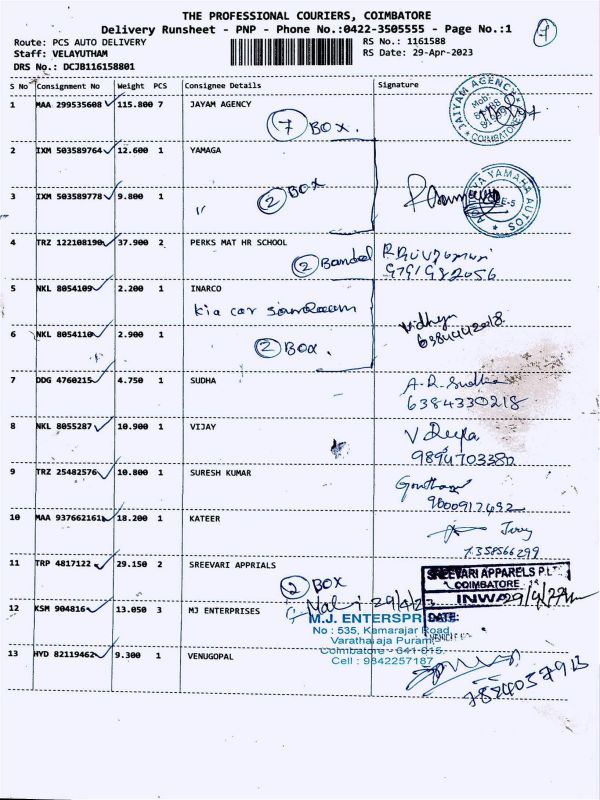 THE PROFESSIONAL COURIERS, COIMBATORE
Delivery Runsheet - PNP - Phone No.:0422-3505555 - Page No.:1
Route: PCS AUTO DELIVERY
RS No.: 1161588
Staff: VELAYUTHAM
RS Date: 29-Apr-2023
DRS No.: DCJB116158801
S No Consignment No Weight PCS Consignee Details Signature
1 MAA 299535608 115.800 7 JAYAM AGENCY
7 BOX.
JAIYAM AGENCY COIMBATORE
2 IXM 503589764 12.600 1 YAMAGA
3 IXM 503589778 9.800 1
" 2 BOX
YAMAHA AUTOS
4 TRZ 122108190 37.900 2 PERKS MAT HR SCHOOL
2 Bandel
9791982056
5 NKL 8054109 2.200 1 INARCO
kia car
Vidhya
6384442018
6 NKL 8054110 2.900 1
2 BOX.
7 DDG 4760215 4.750 1 SUDHA
A.R. Sudha
6384330218
8 NKL 8055287 10.900 1 VIJAY
9894703382
9 TRZ 25482576 10.800 1 SURESH KUMAR
9000917492
10 MAA 937662161 18.200 1 KATEER
7358566299
11 TRP 4817122 29.150 2 SREEVARI APPRIALS
2 BOX
SREEVARI APPARELS P LTD
COIMBATORE
INWARD
29/4/23
DATE:
12 KSM 904816 13.050 3 MJ ENTERPRISES
29/4/23
M.J. ENTERSPR
No : 535, Kamarajar Road,
Varatharaja Puram,
Coimbatore - 641 015.
Cell : 9842257187
13 HYD 82119462 9.300 1 VENUGOPAL